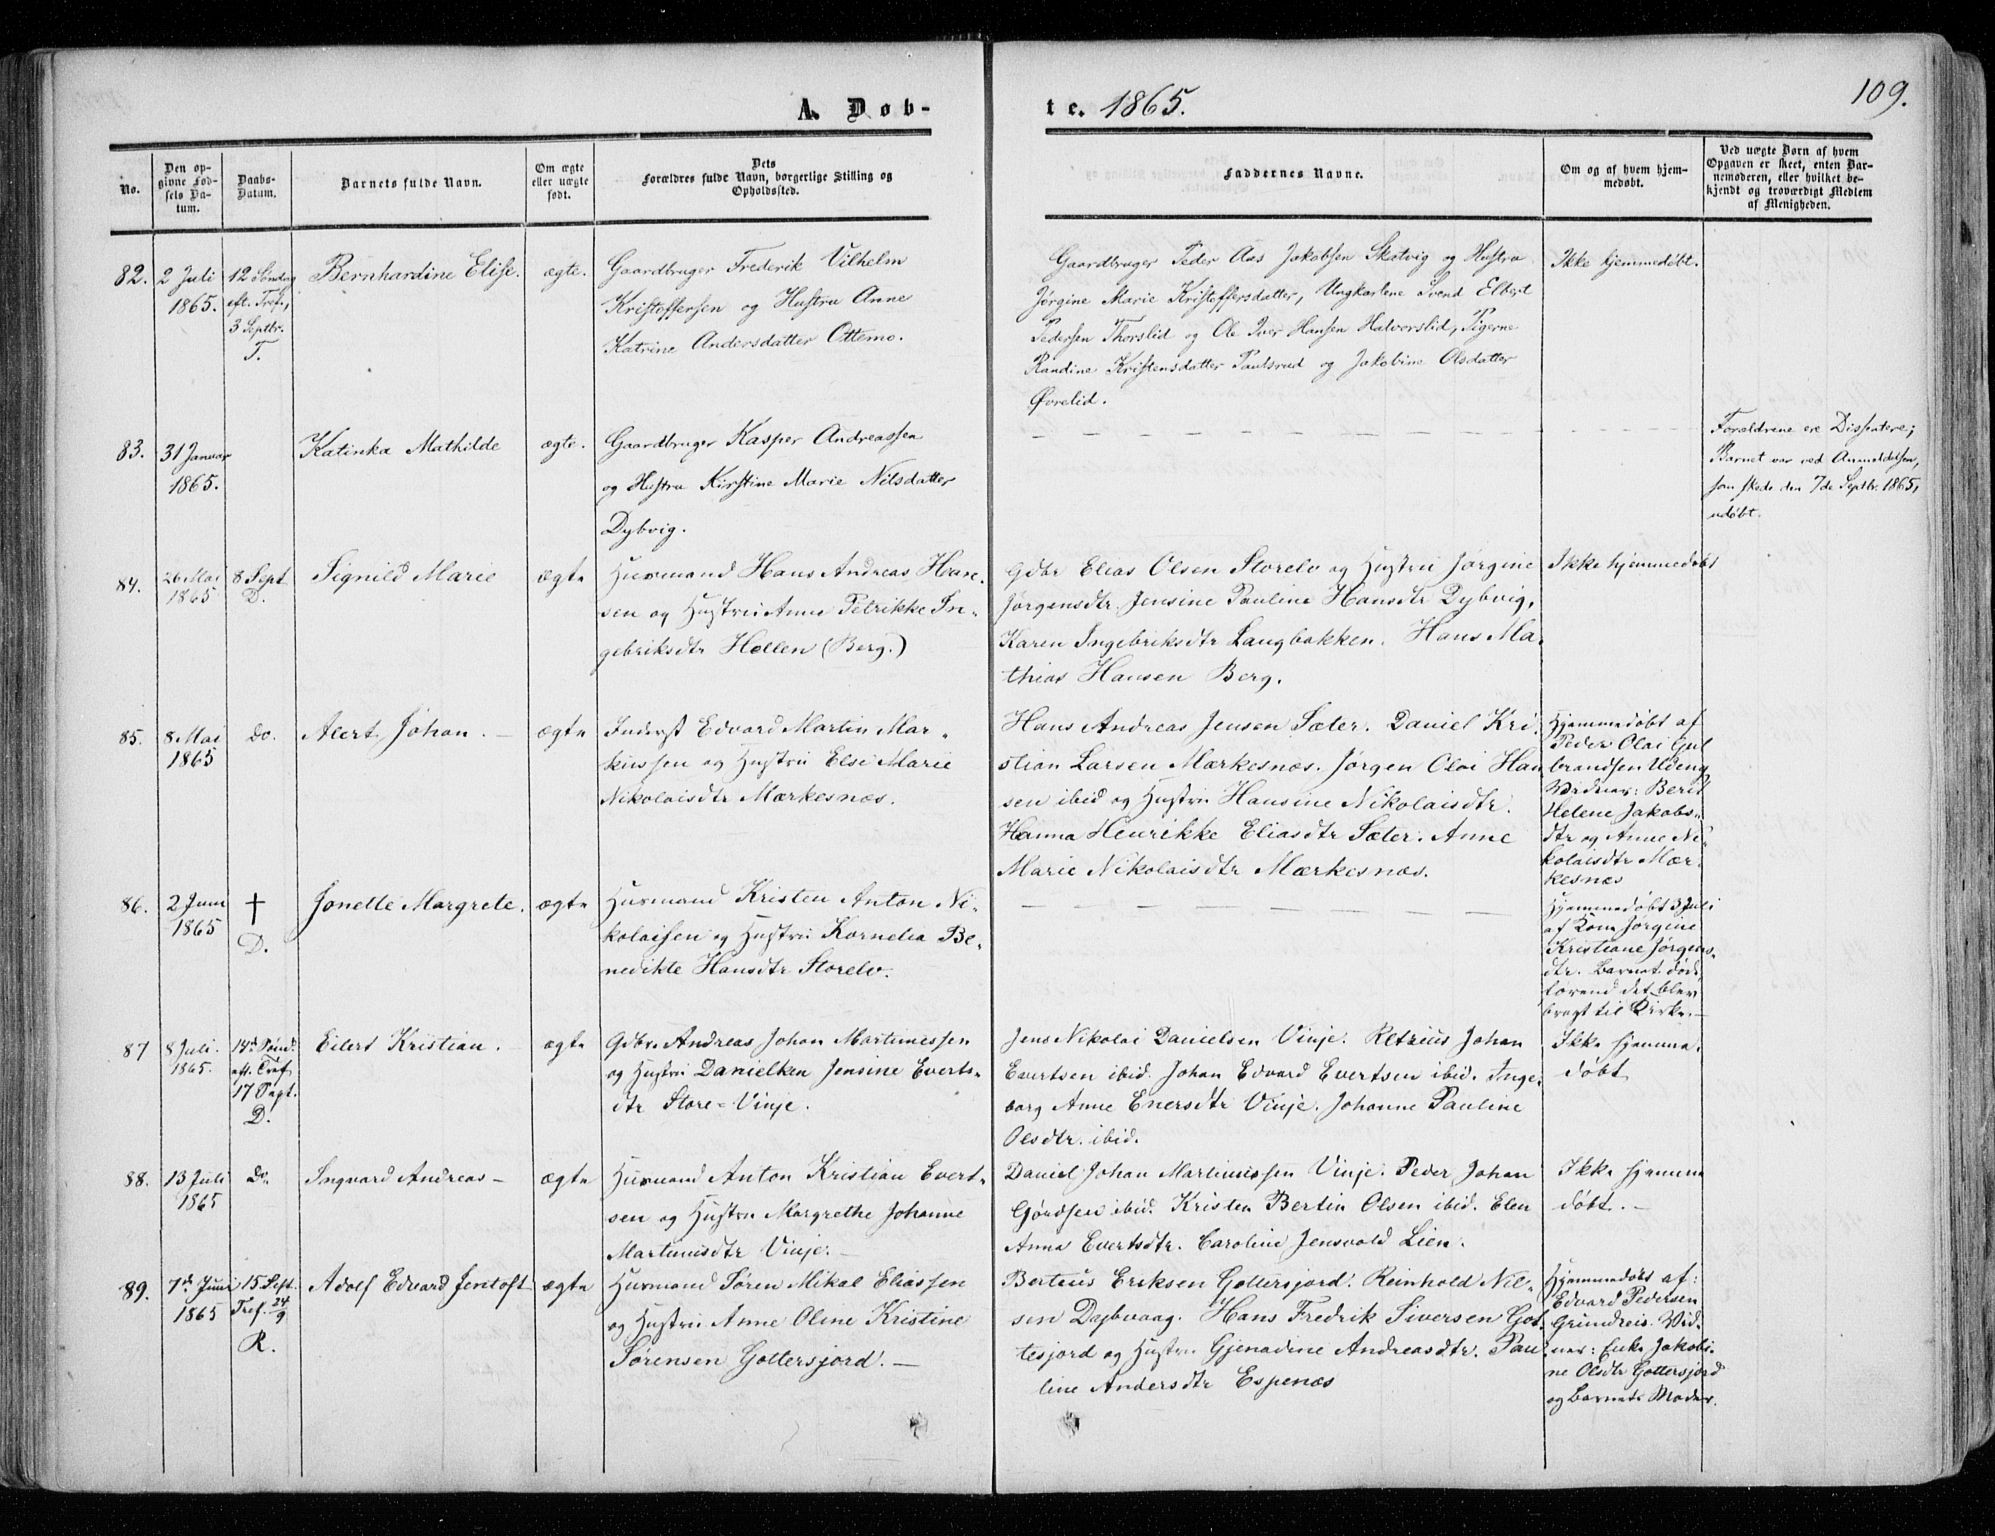 109.
A. Døb-
te. 1865.
No.
Den op-
givne Fød-
sels Da-
tum.
Daabs-
Datum.
Barnets fulde Navn.
Om ægte
eller uægte
født.
Dets
Forældres fulde Navn, borgerlige Stilling og
Opholdssted.
Faddernes Navne.
Om og af hvem hjem-
medøbt.
Ved uægte Børn af hvem
Opgaven er skeet, enten Bar-
nemoderen, eller hvilket be-
kjendt og troværdigt Medlem
af Menigheden.
82.
2 Juli
1865.
12 Søndag
eft. Tref.,
3 Septbr.
T.
Bernhardine Elise.
ægte.
Gaardbruger Frederik Vilhelm
Kristoffersen og Hustru Anne
Katrine Andersdatter Ottemo.
Gaardbruger Peder Aas Jakobsen Skotvig og Hustru
Jørgine Marie Kristoffersdatter, Ungkarlene Svend Elbert
Pedersen Thorslid og Ole Iver Hansen Halvorslid, Pigerne
Randine Kristensdatter Paulsrud og Jakobine Olsdatter
Øvrelid.
Ikke hjemmedøbt.
83.
31 Januar
1865.
Katinka Mathilde
ægte.
Gaardbruger Kasper Andreassen
og Hustru Kirstine Marie Nilsdatter
Dybvig.
Forældrene ere Dissentere;
Barnet var ved Anmeldelsen,
som skede den 7de Septbr. 1865,
udøbt.
84.
26 Mai
1865
8 Sept
D.
Signild Marie
ægte
Husmand Hans Andreas Han-
sen og Hustru Anne Petrikke In-
gebriksdtr Hellen (Berg.)
Gdbr Elias Olsen Storelv og Hustru Jørgine
Jørgensdtr. Jensine Pauline Hansdtr Dybvig,
Karen Ingebriksdtr Langbakken. Hans Ma-
thias Hansen Berg.
Ikke hjemmedøbt
85.
8 Mai
1865
Do.
Alert Johan. —
ægte
Inderst Edvard Martin Mar-
kussen og Hustru Else Marie
Nikolaisdtr Mærkesnæs.
Hans Andreas Jensen Sæter. Daniel Kri-
stian Larsen Mærkesnæs. Jørgen Olai Han
sen ibid og Hustru Hansine Nikolaisdtr.
Hanna Henrikke Eliasdtr Sæter. Anne
Marie Nikolaisdtr Mærkesnæs.
Hjemmedøbt af
Peder Olai Gul
brandsen
Vidner: Berit
Helene Jakobs-
dtr og Anne Ni-
kolaisdtr Mær-
kesnæs
86.
2 Juni
1865
†
D.
Jonette Margrete.
ægte
Husmand Kristen Anton Ni-
kolaisen og Hustru Kornelia Be-
nedikte Hansdtr Storelv.
Hjemmedøbt 3 Juli
af Kone Jørgine
Kristiane Jørgens-
dtr. Barnet døde
førend det blev
bragt til Kirke. —
87
8 Juli.
1865.
14d Sønd.
eft. Tref.
17 Sept.
D.
Eilert Kristian.
ægte
Gdbr. Andreas Johan Martinussen
og Hustru Danielken Jensine Everts-
dtr Store-Vinje.
Jens Nikolai Danielsen Vinje. Petrius Johan
Evertsen ibid. Johan Edvard Evertsen ibid. Inge-
borg Anne Enersdtr Vinje. Johanne Pauline
Olsdtr. ibid.
Ikke hjemme-
døbt
88.
13 Juli
1865
Do.
Ingvard Andreas —
ægte
Husmand Anton Kristian Evert-
sen og Hustru Margrethe Johanne
Martinusdtr Vinje. —
Daniel Johan Martinussen Vinje. Peder Johan
ibid. Kristen Bertin Olsen ibid. Elen
Anna Evertsdtr. Caroline Jensvold Lien.
Ikke hjemme
døbt. —
89.
7de Juni
1865
15 Sept.
Tref. 24/9
R.
Adolf Edvard Jentoft
ægte
Husmand Søren Mikal Eliassen
og Hustru Anne Oline Kristine
Sørensen Gottersjord. —
Berteus Eriksen Gottersjord. Reinhold Nil-
sen Dybvaag. Hans Fredrik Siversen Got-
tesjord og Hustru Gjenadine Andreasdtr. Pau
line Andersdtr Espenæs
Hjemmedøbt af:
Edvard Pedersen
Grundreis. Vid-
ner: Enke Jakobi-
ne Olsdtr Gottersjord
og Barnets Moder.